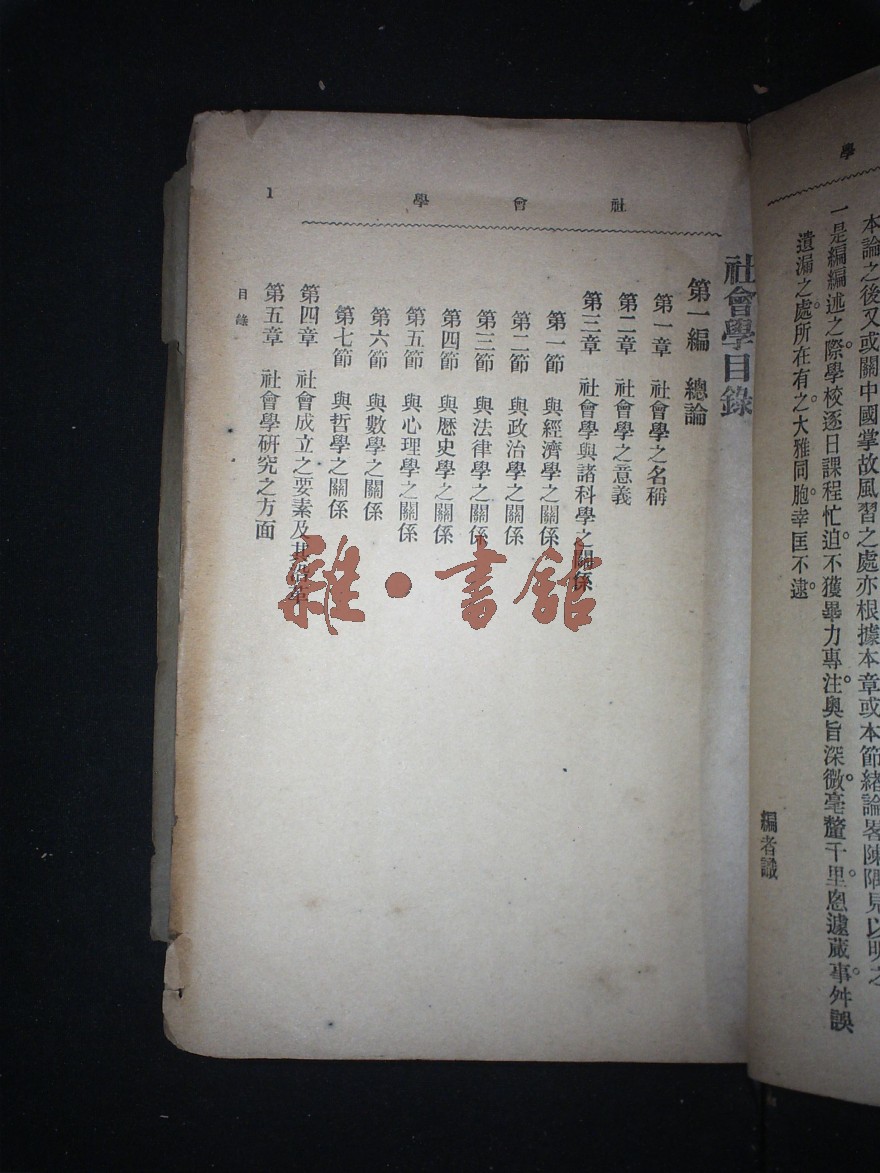 學
本論之後又或關中國掌故風習之處亦根據本章或本節緒論畧陳隅見以明之
一是編編述之際。學校逐日課程忙迫。不獲畢力專注。奧旨深微。毫釐千里。恩遽蕆事。舛誤
遺漏之處。所在有之。大雅同胞。幸匡不逮。
編者識
社會學
1
社會學目錄
第一編 總論
第一章 社會學之名稱
第二章 社會學之意義
第三章 社會學與諸科學之關係
第一節 與經濟學之關係
第二節 與政治學之關係
第三節 與法律學之關係
第四節 與歷史學之關係
第五節 與心理學之關係
第六節 與數學之關係
第七節 與哲學之關係
第四章 社會成立之要素及其沿革
第五章 社會學研究之方面
目錄
雜·書舘